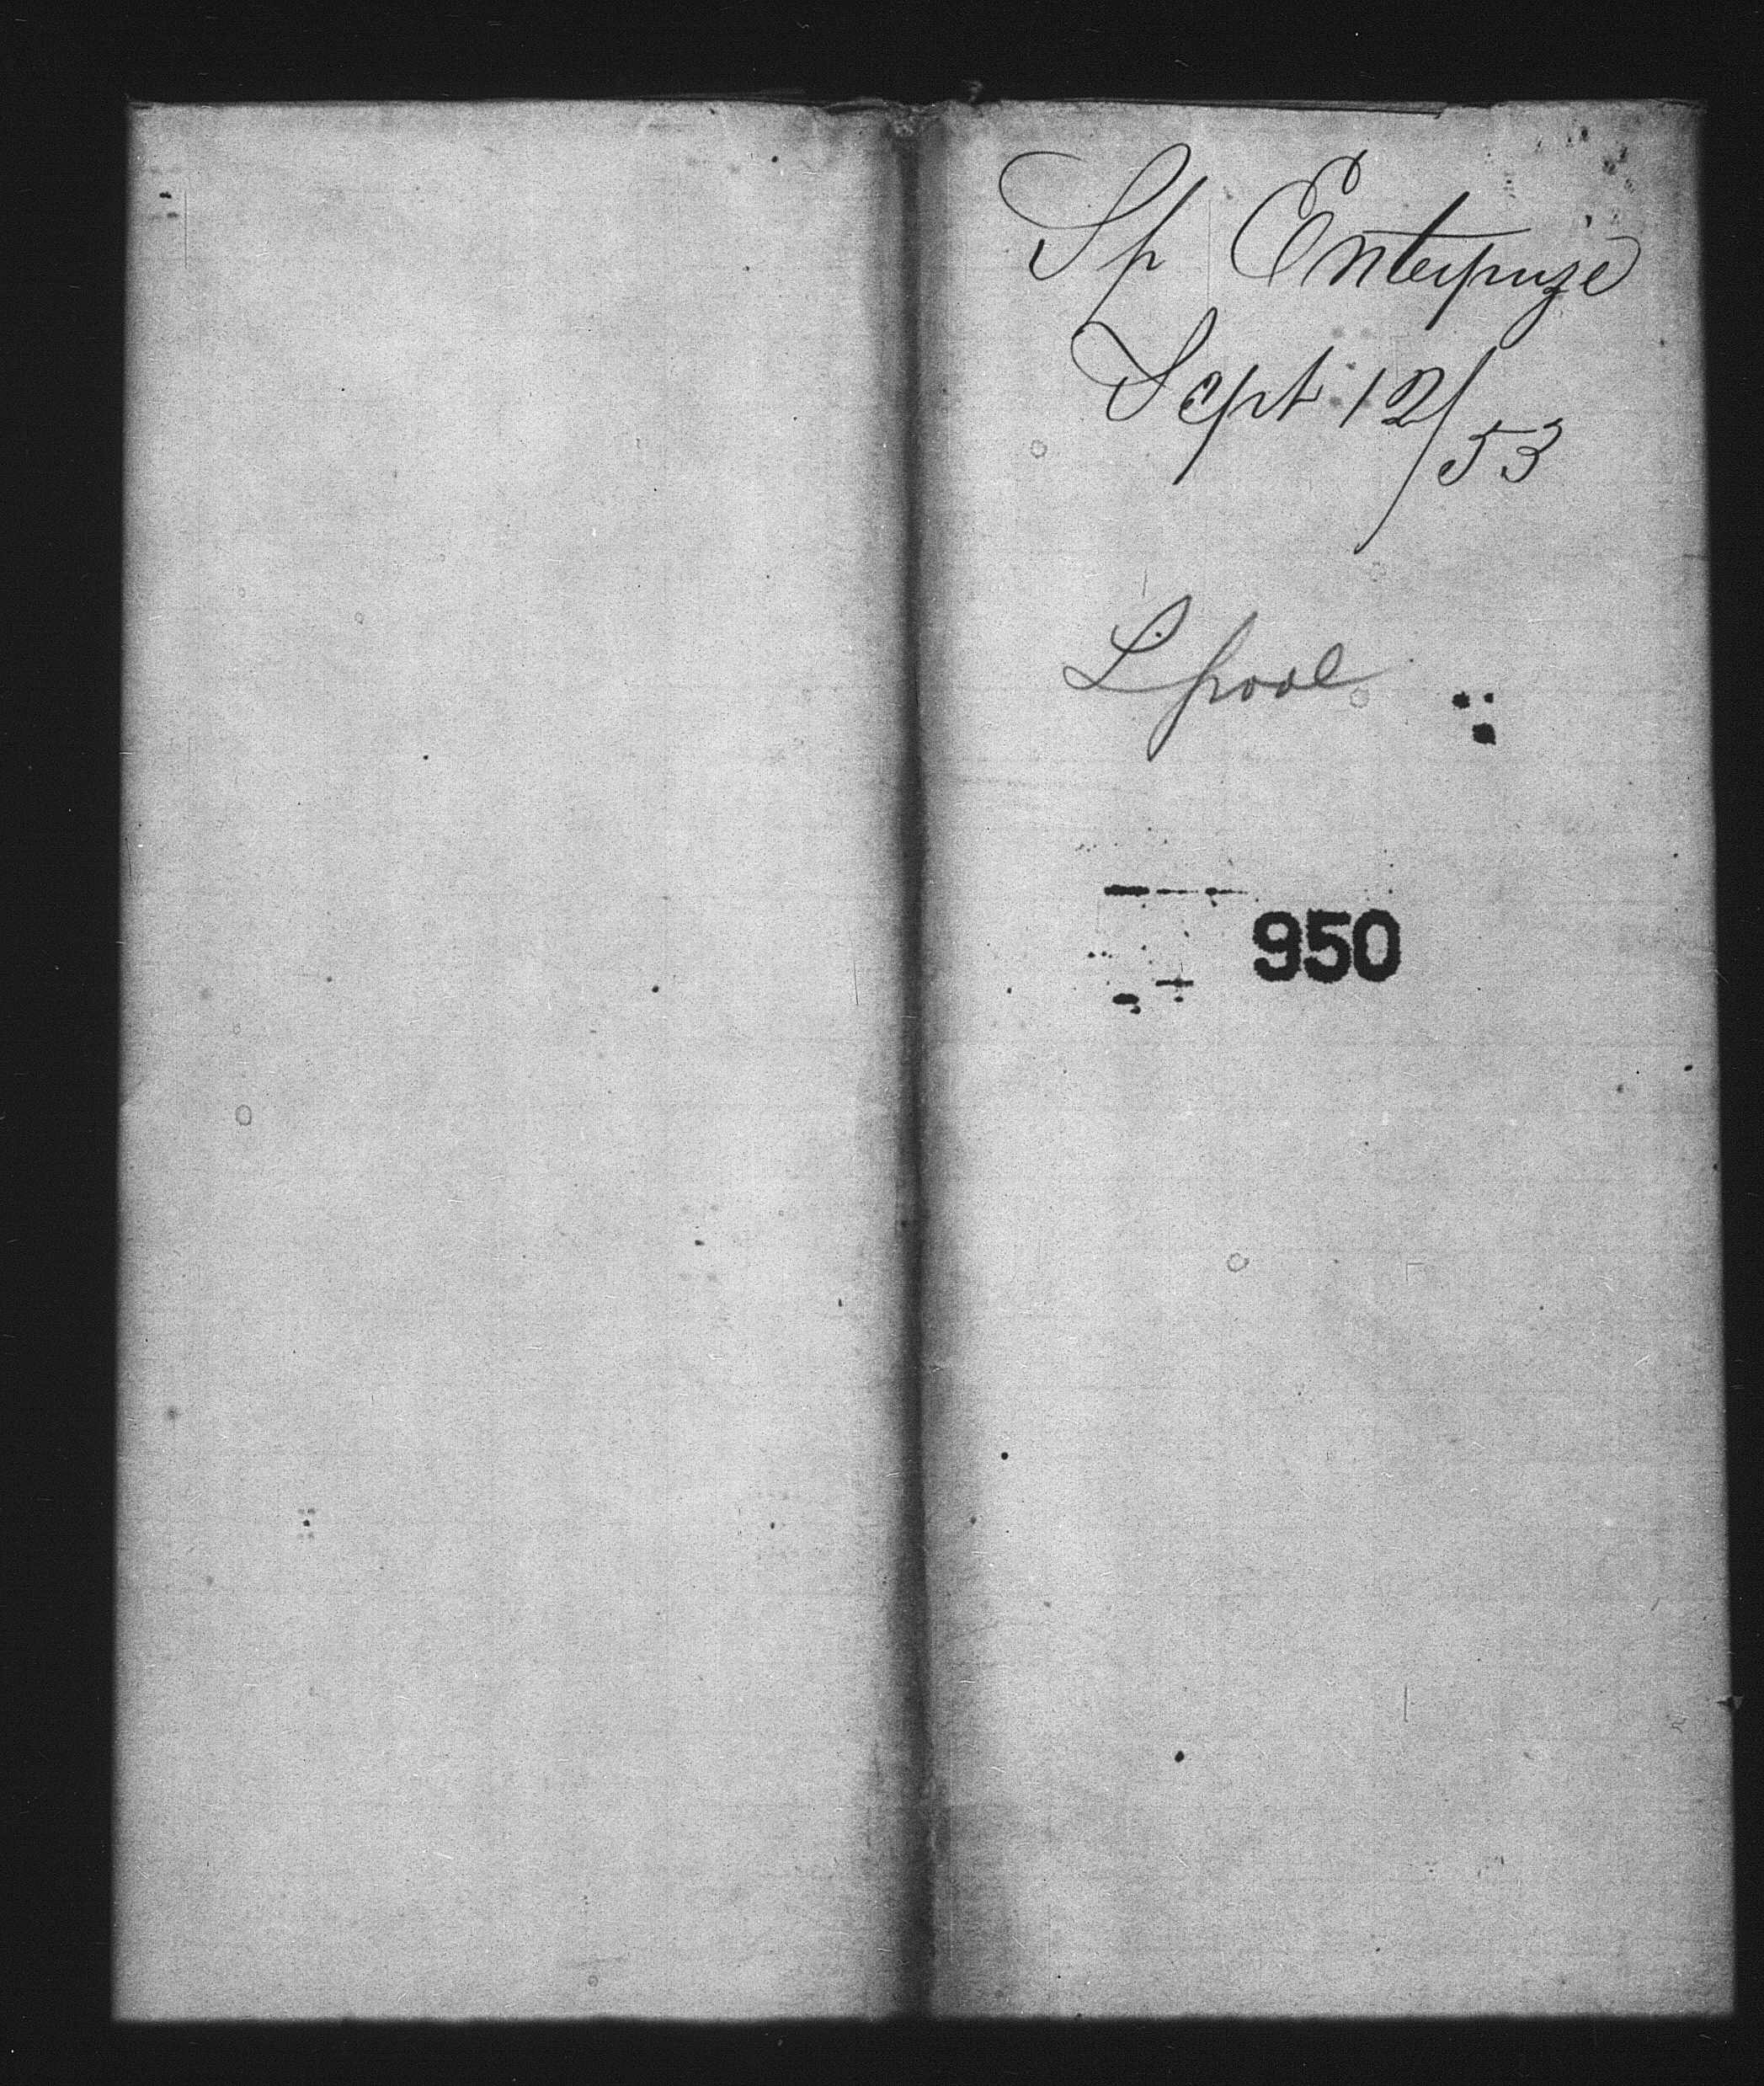 Sp Enterprize
Sept 12/53
Lpool
950